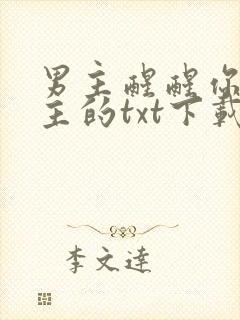 男主醒醒你
主的txt下載
李文達